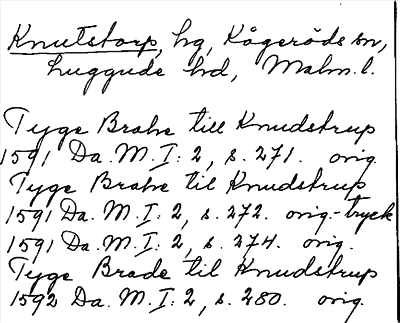 Knutstorp, hg, Kågeröds sn,
Luggude hd, Malm. l.
Tyge Brahe till Knudstrup
1591 Da. M. I: 2, s. 271. orig.
Tyge Brahe til Knudstrup
1591 Da. M. I: 2, s. 272. orig.-tryck
1591 Da. M. I: 2, s. 274. orig.
Tyge Brade til Knudstrup
1592 Da. M. I: 2, s. 280. orig.